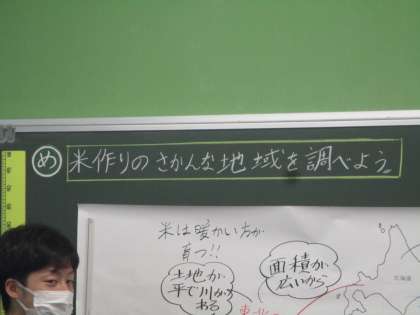 め 米作りのさかんな地域を調べよう。
米は暖かい方が
育つ!!
土地が
平で川が
ある
面積が
広いから
東北
北海道